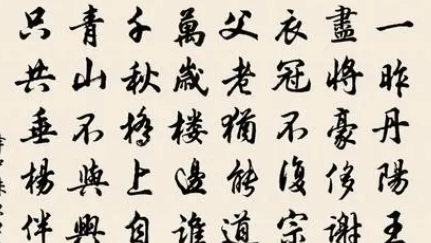 一昨丹陽王
盡將豪侈謝
衣冠不復宗
父老猶能道
萬歲楼邊誰
千秋橋上自
青山不與興
只共垂楊伴